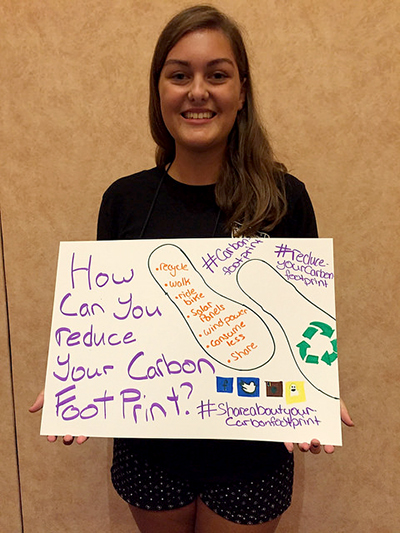 How
Can You
reduce
your Carbon
FootPrint?
• recycle
• walk
• ride
bike
• Solar
Panels
• wind power
• consume
less
• Share
#Carbon
footprint
#reduce-
yourCarbon
footprint
#Shareaboutyour
Carbonfootprint